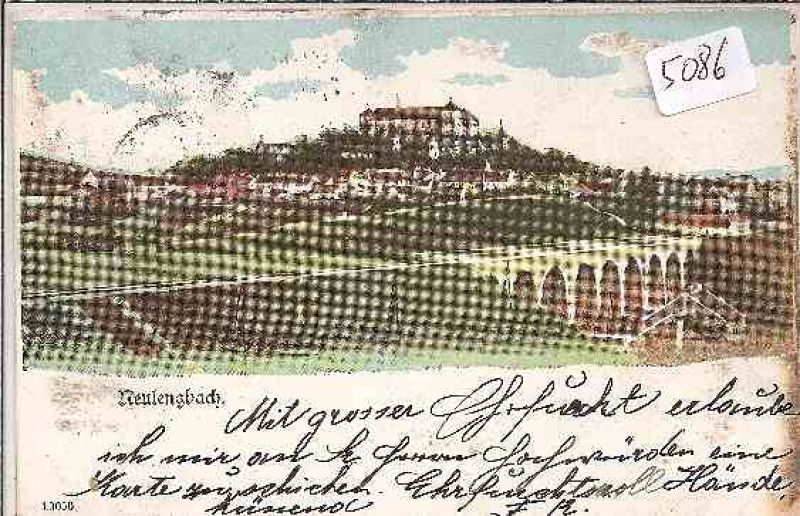 5086
Neulengbach.
Mit grosser Ehrfurcht erlaube
ich mir an H. Herrn Hochwürden eine
Karte zu schicken. Ehrfurchtsvoll Hände
küssend
13058